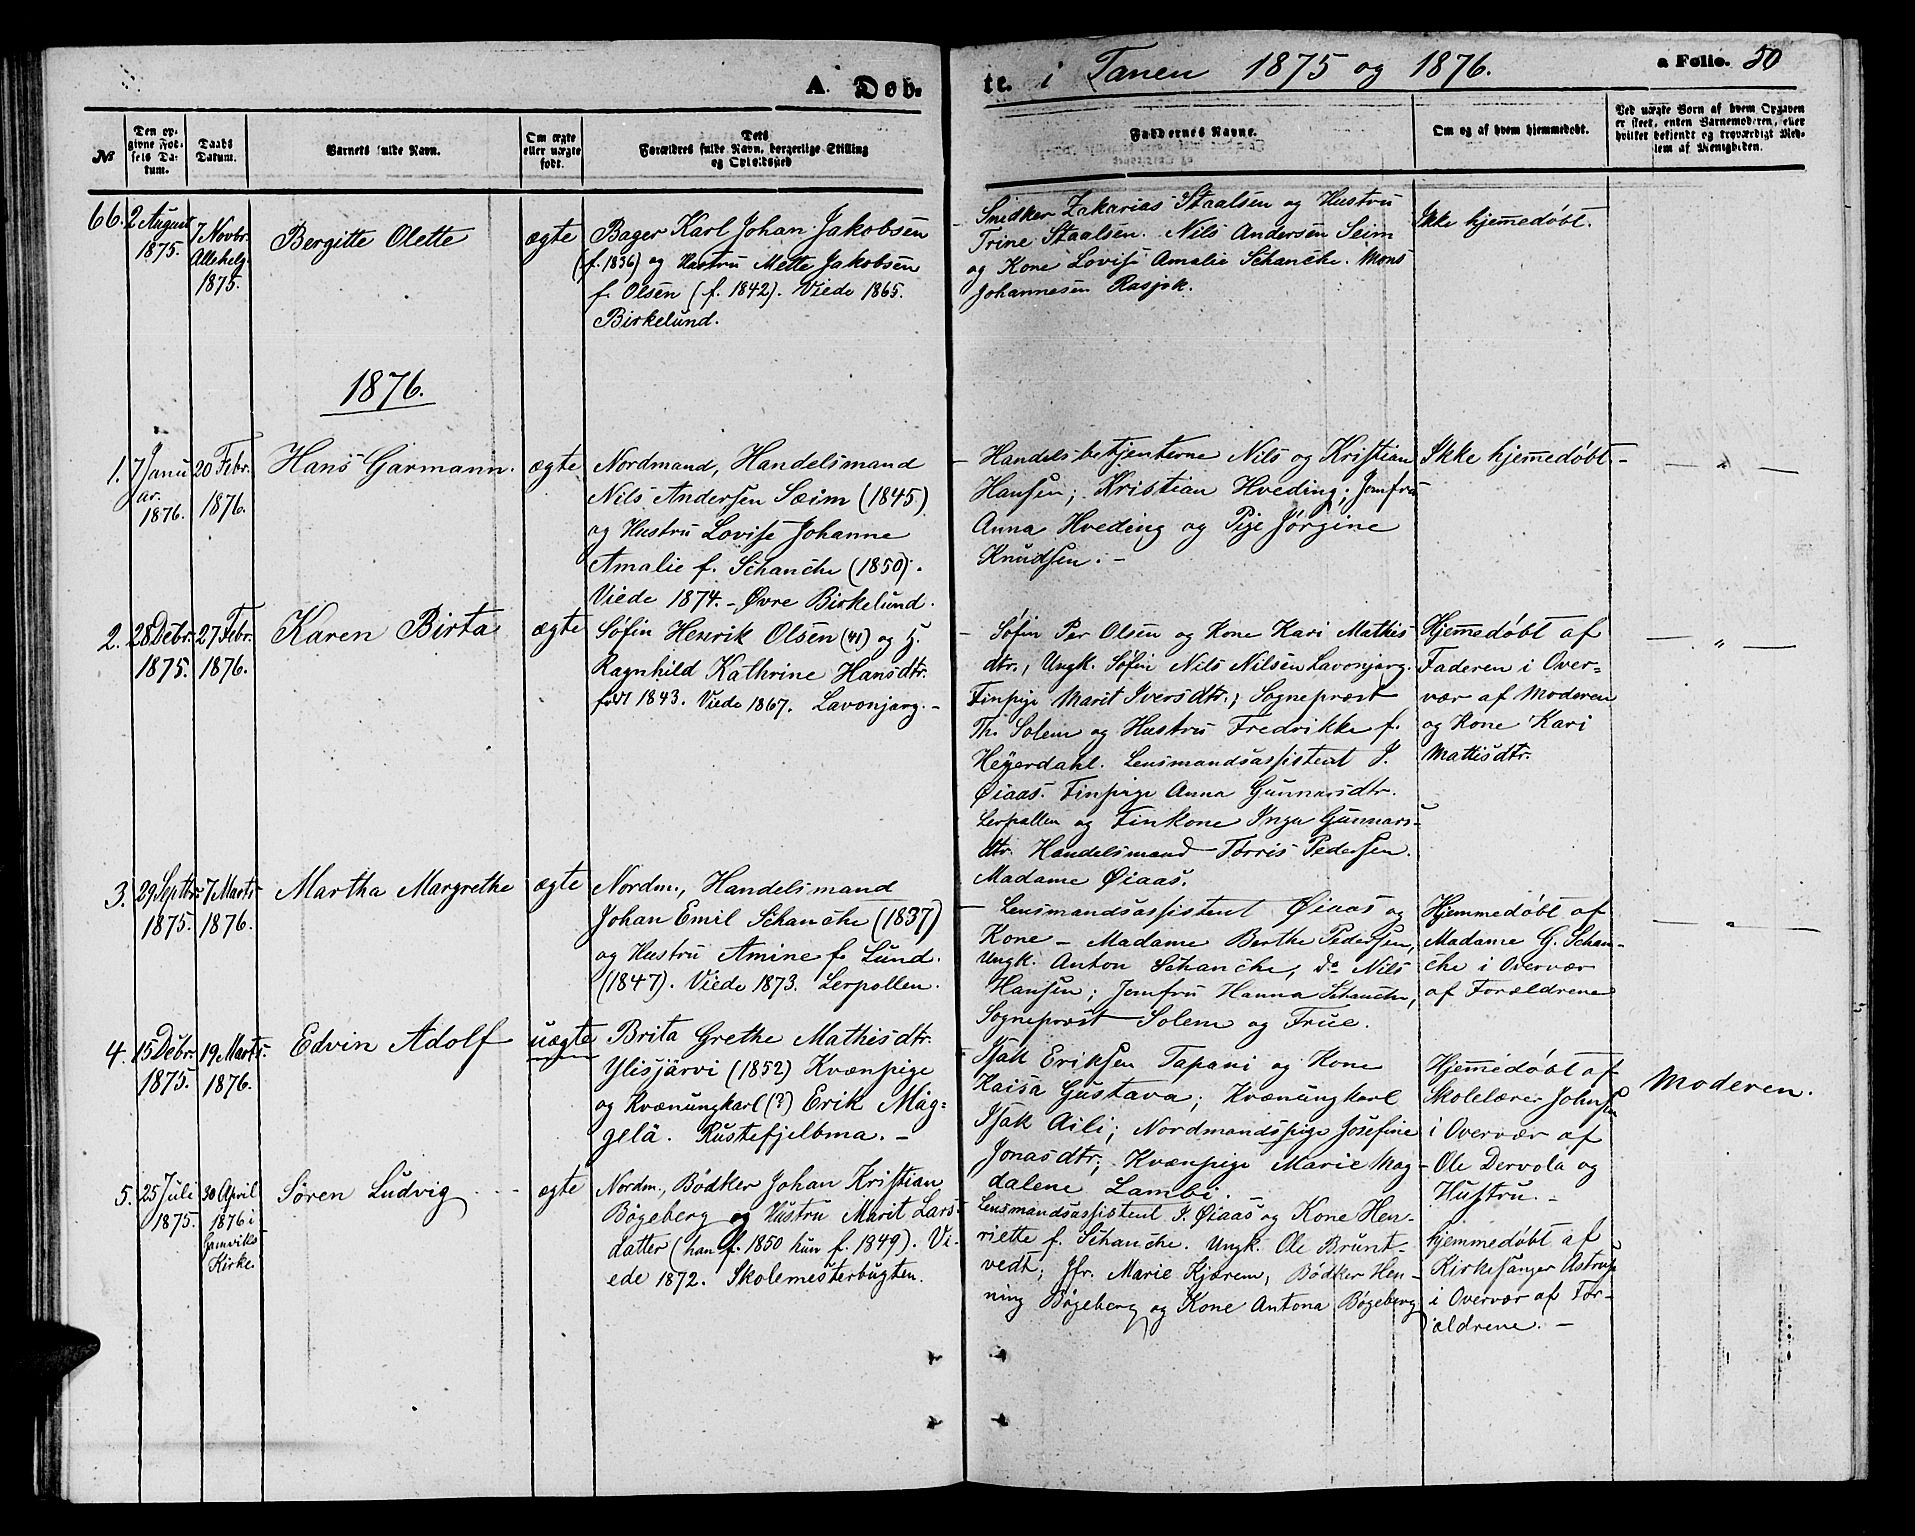 A. Døb-
te. i Tanen 1875 og 1876.
a Folio. 50
№
Den op-
givne Fød-
sels Da-
tum.
Daabs
Datum.
Barnets fulde Navn.
Om ægte
eller uægte
født.
Dets
Forældres fulde Navn, borgerlige Stilling
og Opholdssted
Faddernes Navne.
Om og af hvem hjemmedøbt.
Ved uægte Børn af hvem Opgaven
er skeet, enten Barnemoderen, eller
hvilket bekjendt og troværdigt Med-
lem af Menigheden.
66.
2 August
1875.
7 Novbr.
Allehelg.
1875.
Bergitte Olette
ægte
Bager Karl Johan Jakobsen
(f. 1836) og Hustru Mette Jakobsen
f. Olsen (f. 1842). Viede 1865.
Birkelund.
Snidker Zakarias Staalsen og Hustru
Trine Staalsen. Nils Andersen Seim
og Kone Lovise Amalie Schanche. Mons
Johannesen Rasjok.
Ikke hjemedøbt.
1876.
1.
7 Janu
ar.
1876.
20 Febr.
1876.
Hans Garmann.
ægte
Nordmand, Handelsmand
Nils Andersen Sæim (1845)
og Hustru Lovise Johanne
Amalie f. Schanche (1850).
Viede 1874. - Øvre Birkelund.
- Handelsbetjenterne Nils og Kristian
Hansen; Kristian Hveding; Jomfru
Anna Hveding og Pige Jørgine
Knudsen. -
Ikke hjemedøbt -
— „ —
2.
28 Debr.
1875.
27 Febr.
1876.
Karen Birta
ægte
Søfin Henrik Olsen (41) og H.
Ragnhild Kathrine Hansdtr.
født 1843. Viede 1867. Lavonjarg. -
- Søfin Per Olsen og Kone Kari Mathis
dtr., Ungk. Søfin Nils Nilsen Lavonjarg.
Finpige Marit Iversdtr.; Sognepræst
Th. Solem og Hustru Fredrikke f.
Heyerdahl. Lensmandsassistent J.
Øiaas. Finpige Anna Gunnarsdtr.
Lerpollen og Finkone Inga Gunnars-
dtr. Handelsmand Torris Pedersen.
Madame Øiaas.
Hjemedøbt af
Faderen i Over-
vær af Moderen
og Kone Kari
Mattisdtr.
— „ —
3.
29 Septbr.
1875.
7 Marts
1876.
Martha Margrethe
ægte
Nordm., Handelsmand
Johan Emil Schanche (1837)
og Hustru Amine f. Lund.
(1847). Viede 1873. Lerpollen.
- Lensmandsassistent Øiaas og
Kone - Madame Berthe Pedersen,
Ungk. Anton Schanche, do Nils
Hansen; Jomfru Hanna Schanche,
Sogneprost Solem og Frue.
Hjemmedøbt af
Madame G. Schan-
che i Overvær
af Forældrene
— „ —
4.
15 Debr.
1875.
19 Marts.
1876.
Edvin Adolf
uægte
Brita Grethe Mathisdtr.
Ylisjärvi (1852) Kvænpige
og Kvænungkarl (?) Erik Mäg-
gelä. Rustefjelbma. -
- Isak Eriksen Tapani og Kone
Kaisa Gustava; Kvænungkarl
Isak Aili; Nordmandspige Josefine
Jonasdtr; Kvænpige Marie Mag-
dalene Lambi.
Hjemedøbt af
Skolelærer Johnsen
i Overvær af
Ole Dervola og
Hustru. -
Moderen.
5.
25 Juli
1875.
30 April
1876 i
Gamviks
Kirke.
Søren Ludvig
ægte
Nordm., Bødker Johan Kristian
Bøgeberg og Hustru Marit Lars-
datter (han f. 1850 hun f. 1849). Vi-
ede 1872. Skolemesterbugten.
Lensmandsassistent J. Øiaas og Kone Hen-
riette f. Schanche. Ungk. Ole Brunt-
vedt; Jfr. Marie Kjærem, Bødker Hen-
ning Bøgeberg og Kone Antona Bøgeberg
hjemmedøbt af
Kirkesanger Astrup
i Overvær af For-
ældrene. -